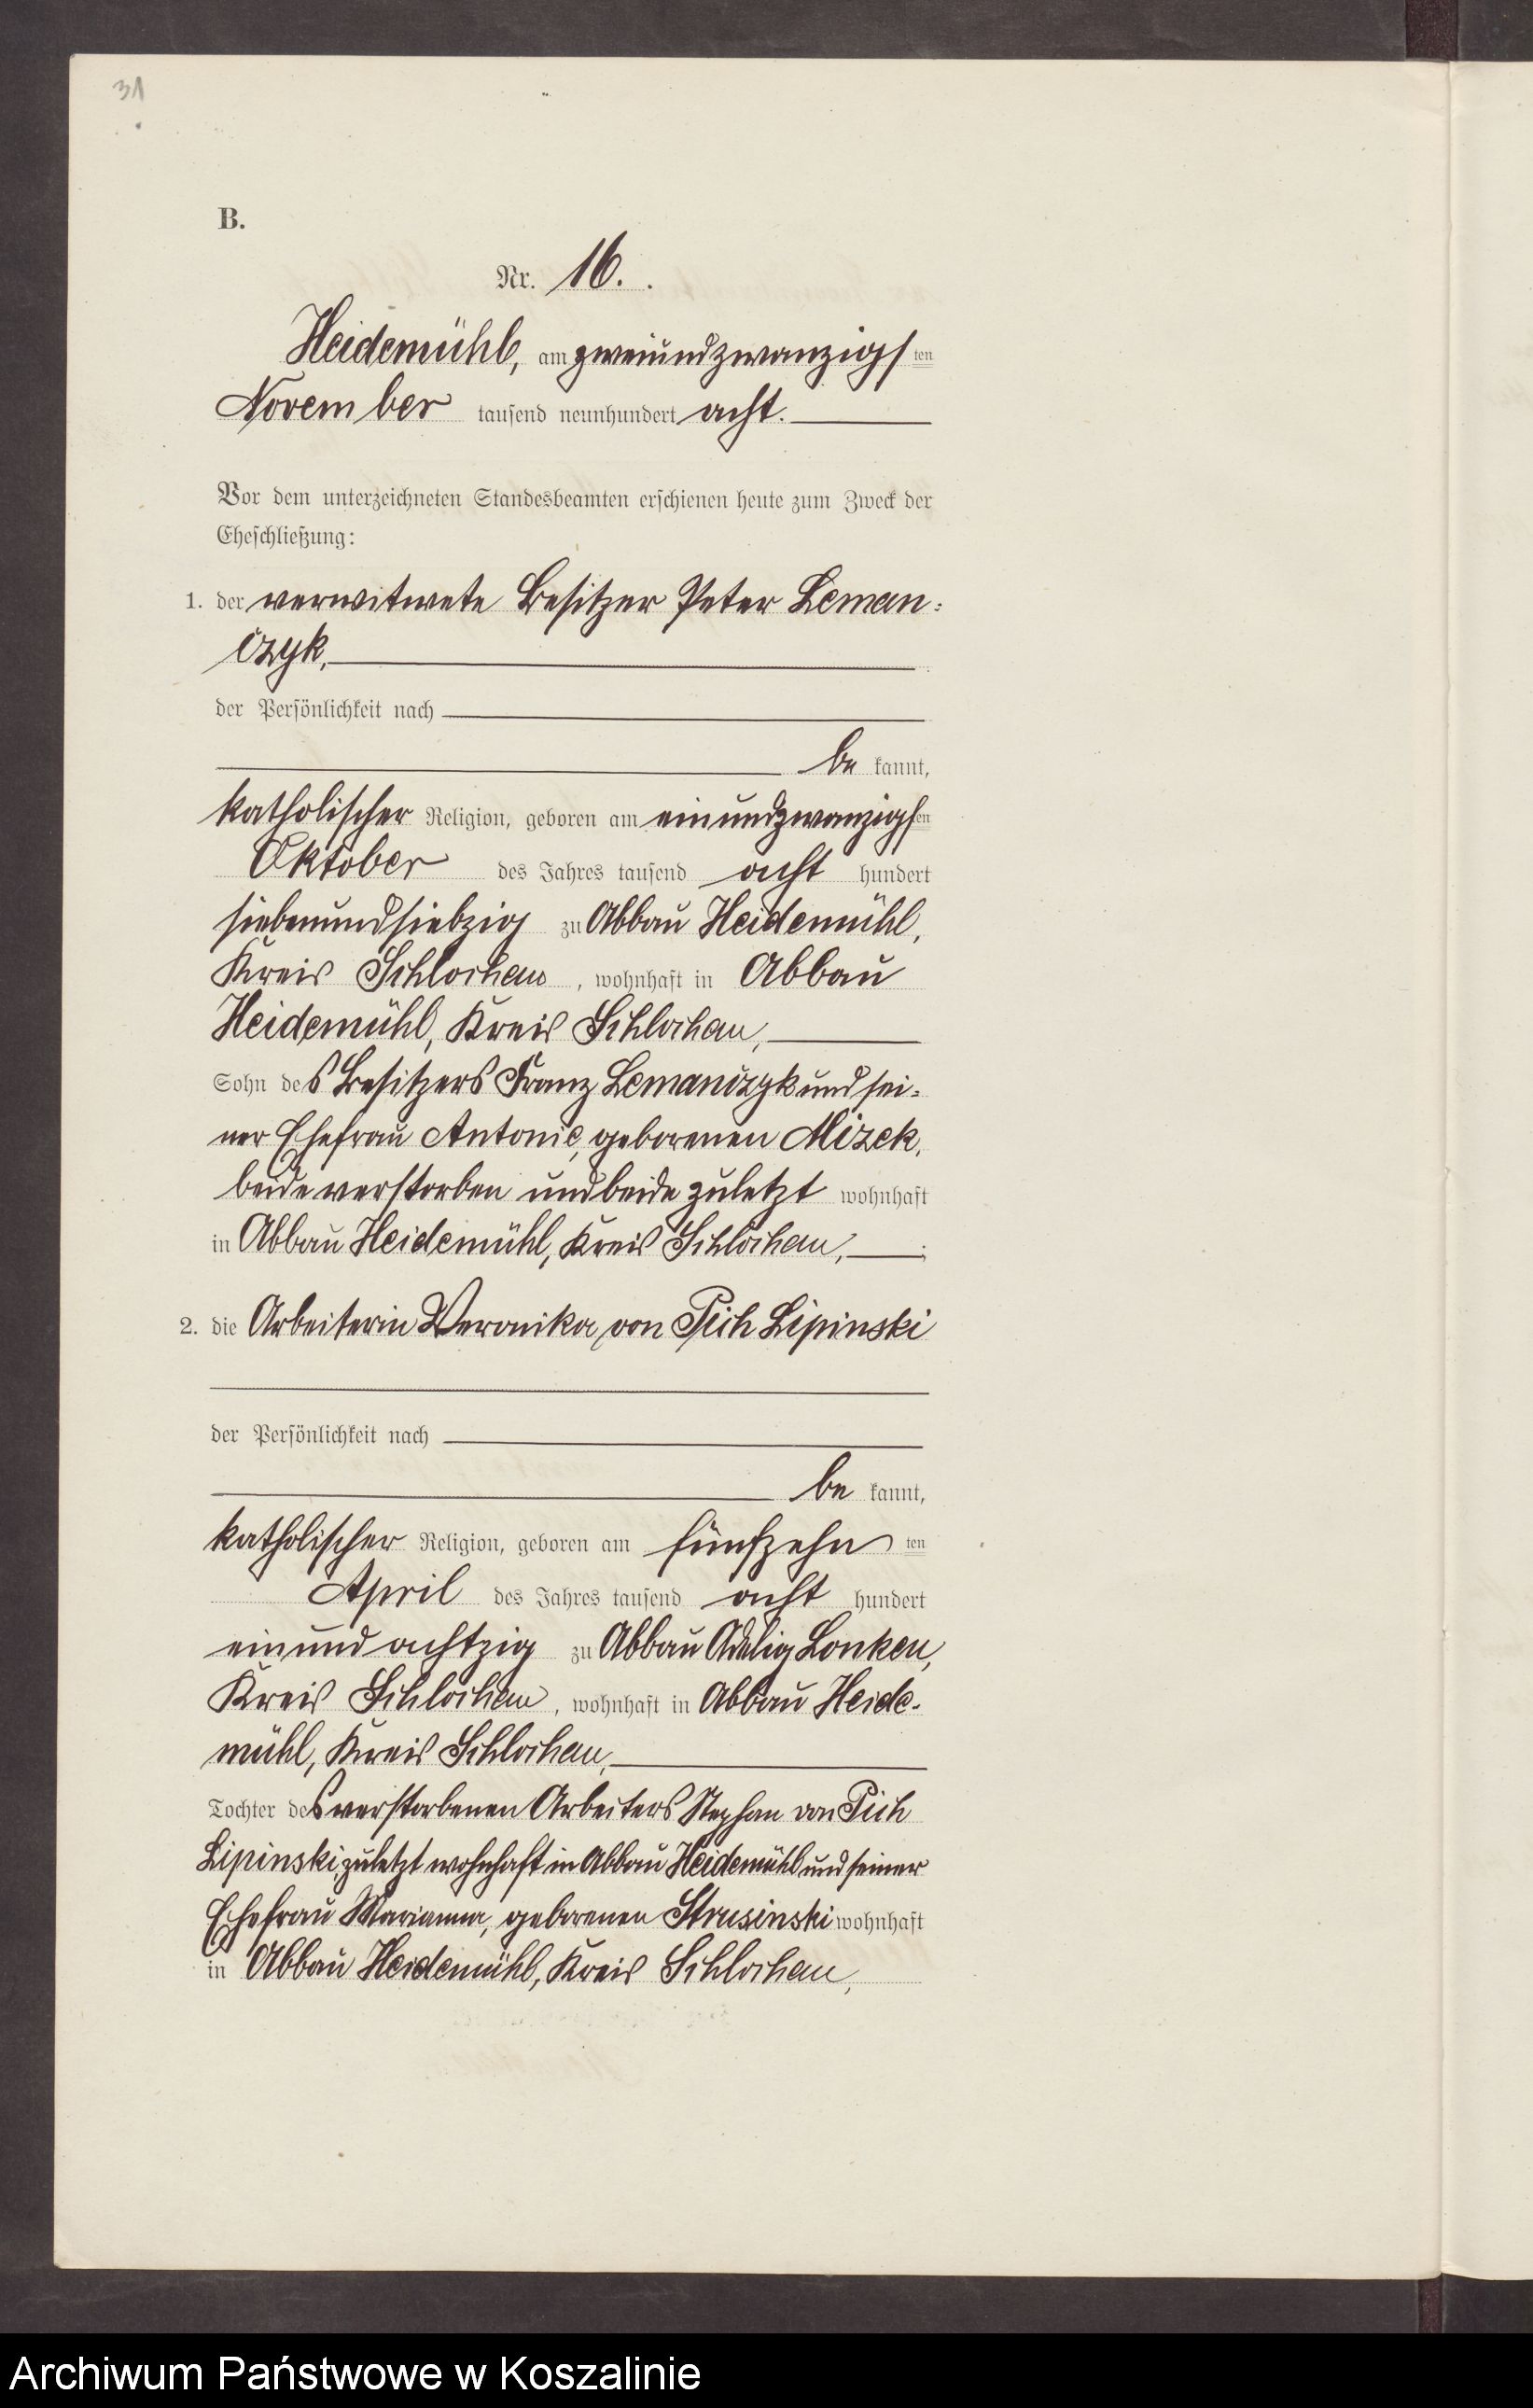 31
B.
Nr. 16.
Heidemühl, am zweiundzwanzigsten
November tausend neunhundert acht.
Vor dem unterzeichneten Standesbeamten erschienen heute zum Zweck der
Eheschließung:
1. der verwitwete Besitzer Peter Leman=
czyk,
der Persönlichkeit nach
be kannt,
katholischer Religion, geboren am einundzwanzigsten
Oktober des Jahres tausend acht hundert
siebenundsiebzig zu Abbau Heidemühl,
Kreis Schlochau, wohnhaft in Abbau
Heidemühl, Kreis Schlochau,
Sohn des Besitzers Franz Lemanczyk und sei=
ner Ehefrau Antonie, geborenen Mizek,
beide verstorben und beide zuletzt wohnhaft
in Abbau Heidemühl, Kreis Schlochau, ;
2. die Arbeiterin Veronika von Pich Lipinski
der Persönlichkeit nach
be kannt,
katholischer Religion, geboren am fünfzehn ten
April des Jahres tausend acht hundert
einundachtzig zu Abbau Adelig Lonken,
Kreis Schlochau, wohnhaft in Abbau Heide=
mühl, Kreis Schlochau,
Tochter des verstorbenen Arbeiters Stephan von Pich
Lipinski, zuletzt wohnhaft in Abbau Heidemühl und seiner
Ehefrau Marianna, geborenen Strusinski wohnhaft
in Abbau Heidemühl, Kreis Schlochau,
Archiwum Państwowe w Koszalinie